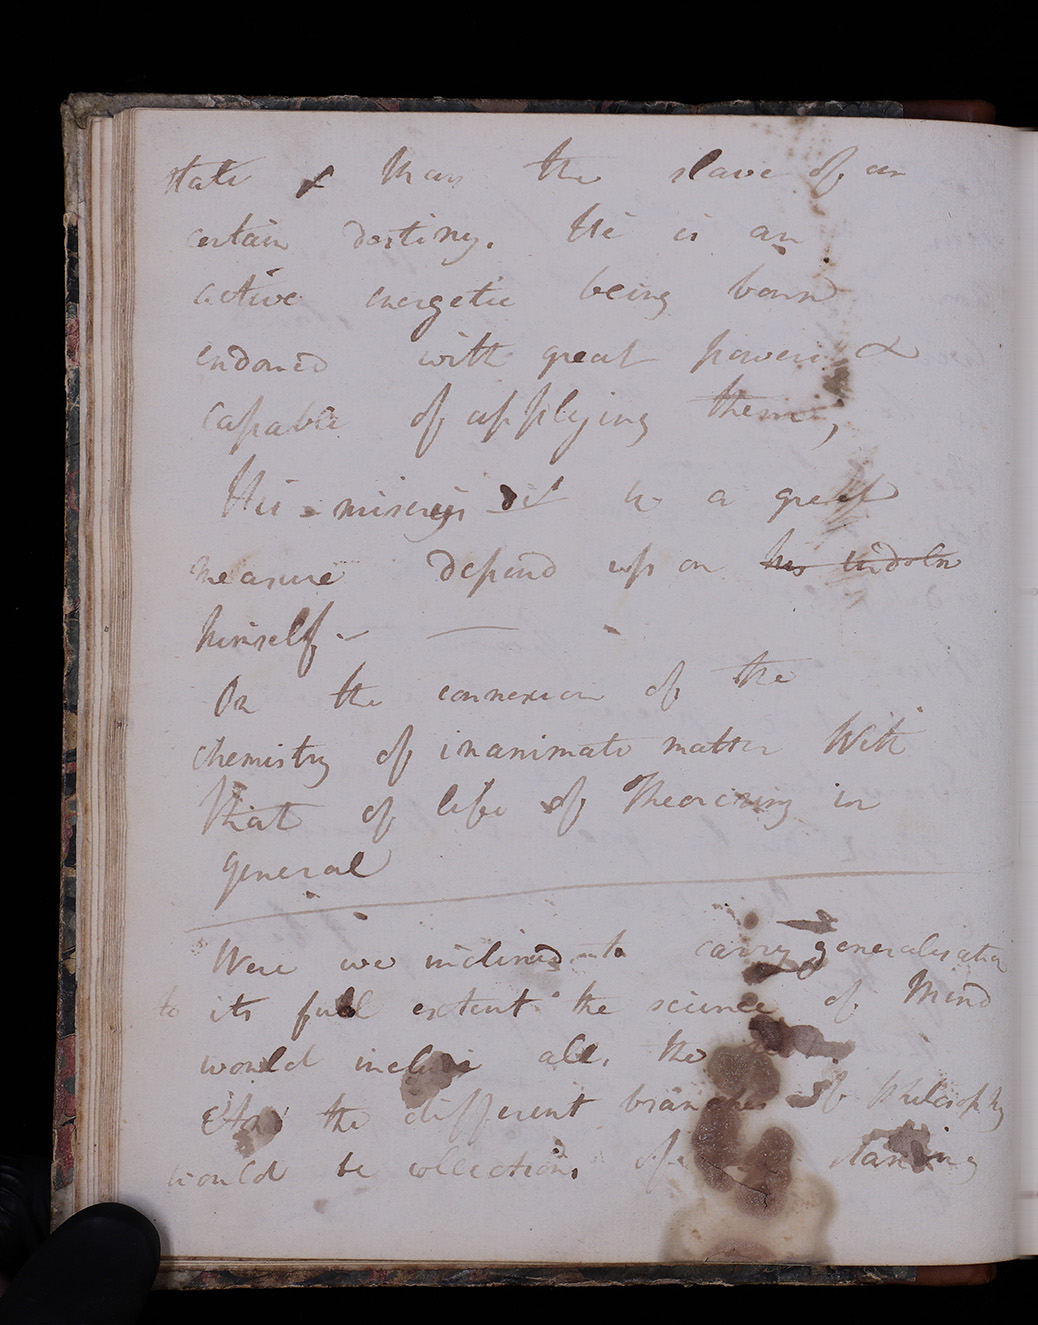 state & than the slave of an
certain destiny. He is an
active energetic being born
endowed with great powers &
capable of applying them,
His miserys in a great
measure depend upon his indoln
himself –
On the connexion of the
chemistry of inanimate matter With
that of life of Theorising in
general
Were we inclined to carry generalisation
to its full extent the science of Mind
would include all. the
the different branches of Philosophy
would be collections of